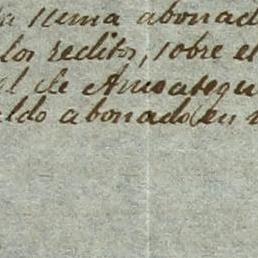 la suma abonad
los reditos, sobre el
l de Amoategu
aldo abonado en